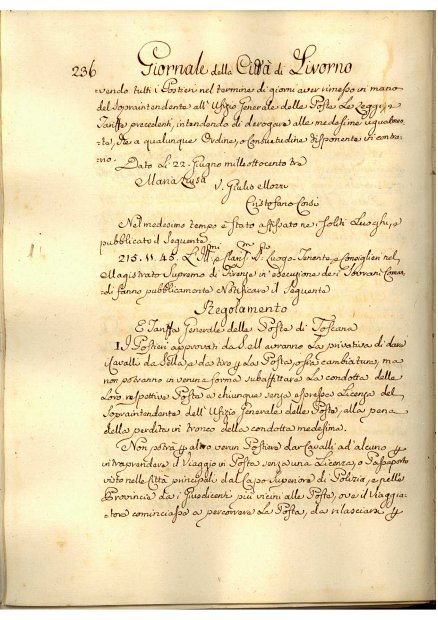 236 Giornale della Città di Livorno
vendo tutti i Postieri nel termine di giorni aver rimesso in mano
del Sopraintendente all'Ufizio Generale delle Poste Le Leggi, e
Tariffe precedenti, intendendo di derogare alle medesime egualmen
te, che a qualunque Ordine, o Consuetudine disponente in contra
rio.
Dato Li 22. Giugno mille ottocento tre
Maria Luisa
V. Giulio Mozzi
Cristofano Corsi
Nel medesimo tempo è stato affissato ne i soliti Luoghi, e
pubblicato il seguente
215. 11. 45. Luogo-Tenente, e Consiglieri nel
Magistrato Supremo di Firenze in esecuzione de i Sovrani Coman
di fanno pubblicamente Notificare il seguente
Regolamento
E Tariffa Generale delle Poste di Toscana
I. I Postieri approvati da avranno La privativa di dare
Cavalli da Sella, e da tiro La Posta, o sia cambiatura, ma
non potranno in veruna forma subaffittare La condotta delle
Loro respettive Poste a chiunque senza espressa Licenza del
Sopraintendente dell'Ufizio Generale delle Poste, alla pena
della perdita in tronco della condotta medesima.
Non potrà altro verun Postiere dar Cavalli ad alcuno
intraprendere il Viaggio in Posta senza una Licenza, o Passaporto
visto nelle Città principali dal Capo Superiore di Polizia, e nelle
Provincie da i Giusdicenti più vicini alle Poste, ove il Viaggia
tore cominciasse a percorrere La Posta, da rilasciarsi